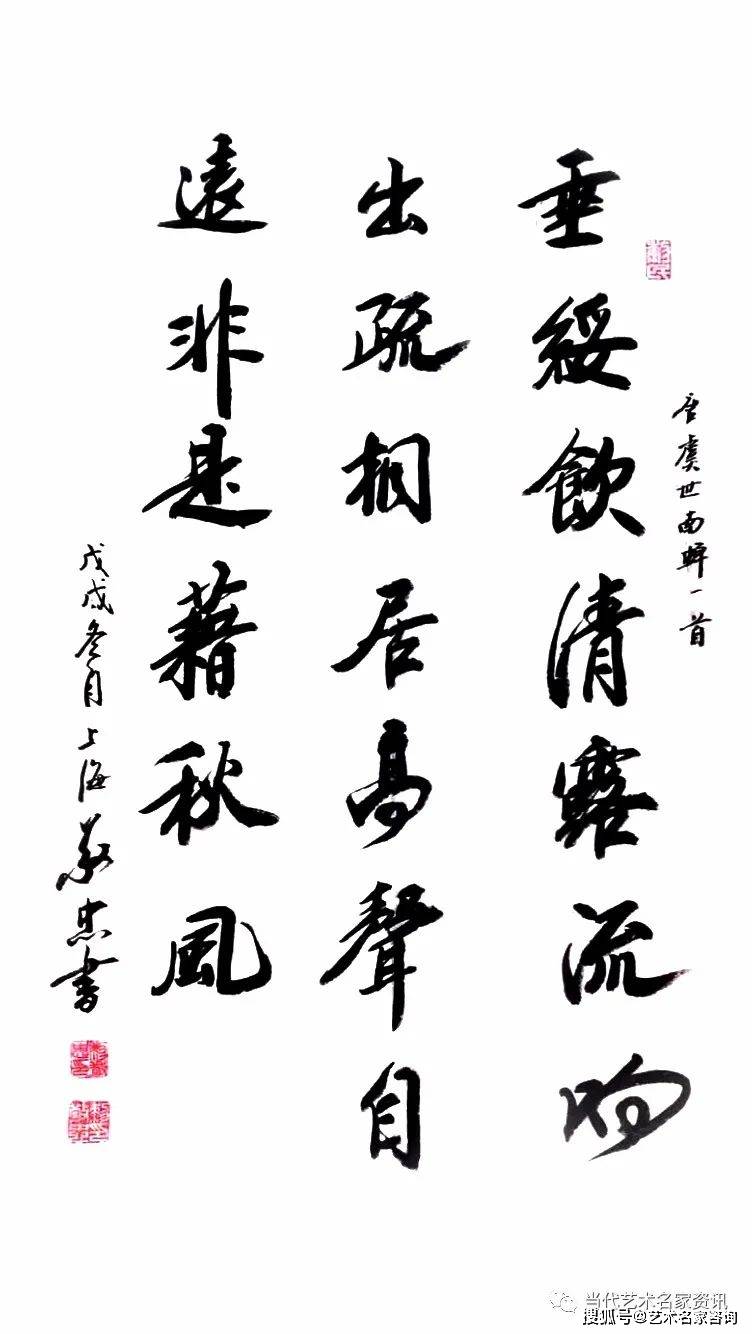 唐虞世南蝉一首
垂綏飲清露流响
出疏桐居高聲自
遠非是藉秋風
戊戌冬月上海忠書
当代艺术名家资讯
搜狐号@艺术名家咨询